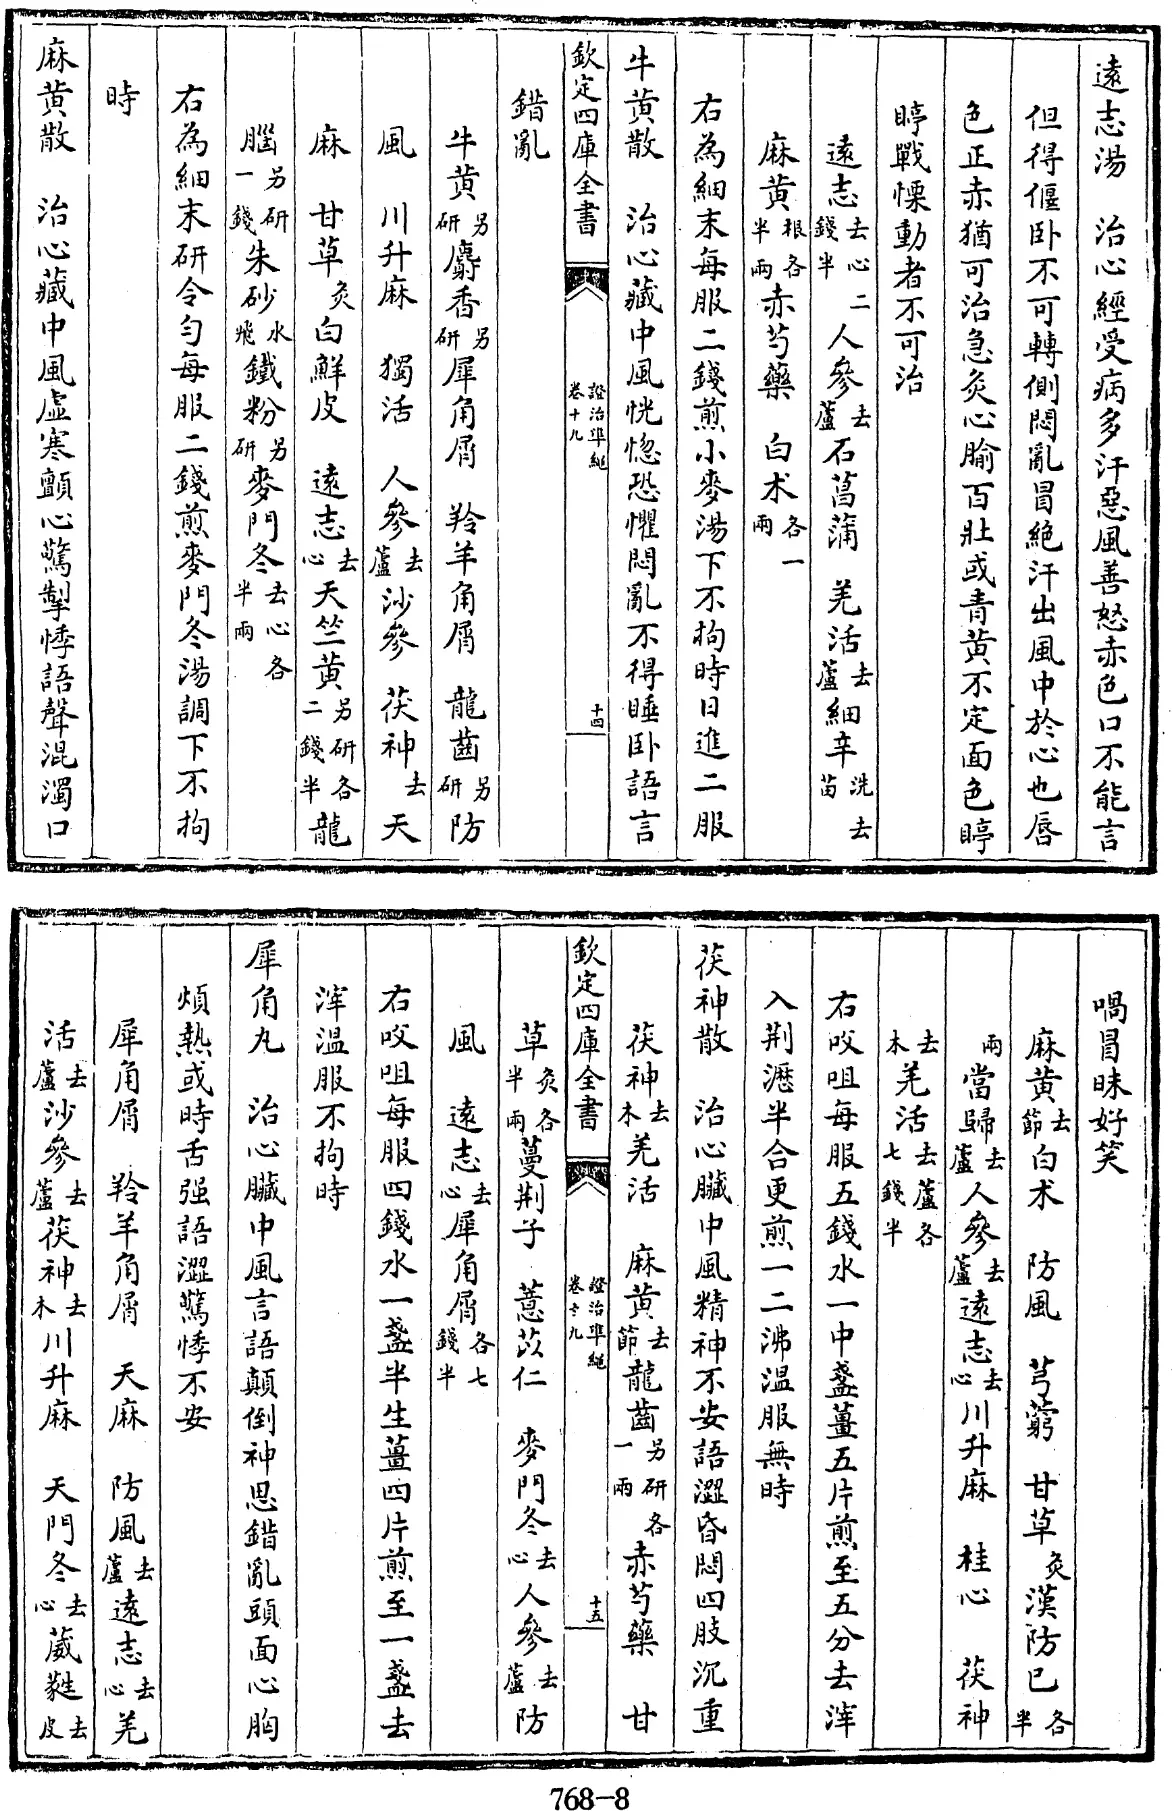 遠志湯　治心經受病多汗惡風善怒赤色口不能言
但得偃卧不可轉側悶亂冒絶汗出風中於心也唇
色正赤猶可治急灸心腧百壯或青黄不定面色䀢
䀢戰慄動者不可治
遠志去心二錢半人參去蘆石菖蒲　羌活去蘆細辛洗去苗
麻黄根各半兩赤芍藥　白术各一兩
右為細末每服二錢煎小麥湯下不拘時日進二服
牛黄散　治心藏中風恍惚恐懼悶亂不得睡卧語言
欽定四庫全書　證治準繩卷十九　十四
錯亂
牛黄另研麝香另研犀角屑　羚羊角屑　龍齒另研防
風　川升麻　獨活　人參去蘆沙參　茯神去　天
麻　甘草炙白鮮皮　遠志去心天竺黄另研各二錢半龍
腦另研一錢朱砂水飛鐵粉另研麥門冬去心各半兩
右為細末研令匀每服二錢煎麥門冬湯調下不拘
時
麻黄散　治心藏中風虛寒顫心驚掣悸語聲混濁口
喎冒昧好笑
麻黄去節白术　防風　芎藭　甘草炙漢防已各半
兩當歸去蘆人參去蘆遠志去心川升麻　桂心　茯神
去木羌活去蘆各七錢半
右㕮咀每服五錢水一中盞薑五片煎至五分去滓
入荆瀝半合更煎一二沸温服無時
茯神散　治心臟中風精神不安語澀昏悶四肢沉重
茯神去木羌活　麻黄去節龍齒另研各一兩赤芍藥　甘
欽定四庫全書　證治準繩卷十九　十五
草炙各半兩蔓荆子　薏苡仁　麥門冬去心人參去蘆防
風　遠志去心犀角屑各七錢半
右㕮咀每服四錢水一盞半生薑四片煎至一盞去
滓温服不拘時
犀角丸　治心臟中風言語顛倒神思錯亂頭面心胸
煩熱或時舌强語澀驚悸不安
犀角屑　羚羊角屑　天麻　防風去蘆遠志去心羌
活去蘆沙參去蘆茯神去木川升麻　天門冬去心葳蕤去皮
768-8